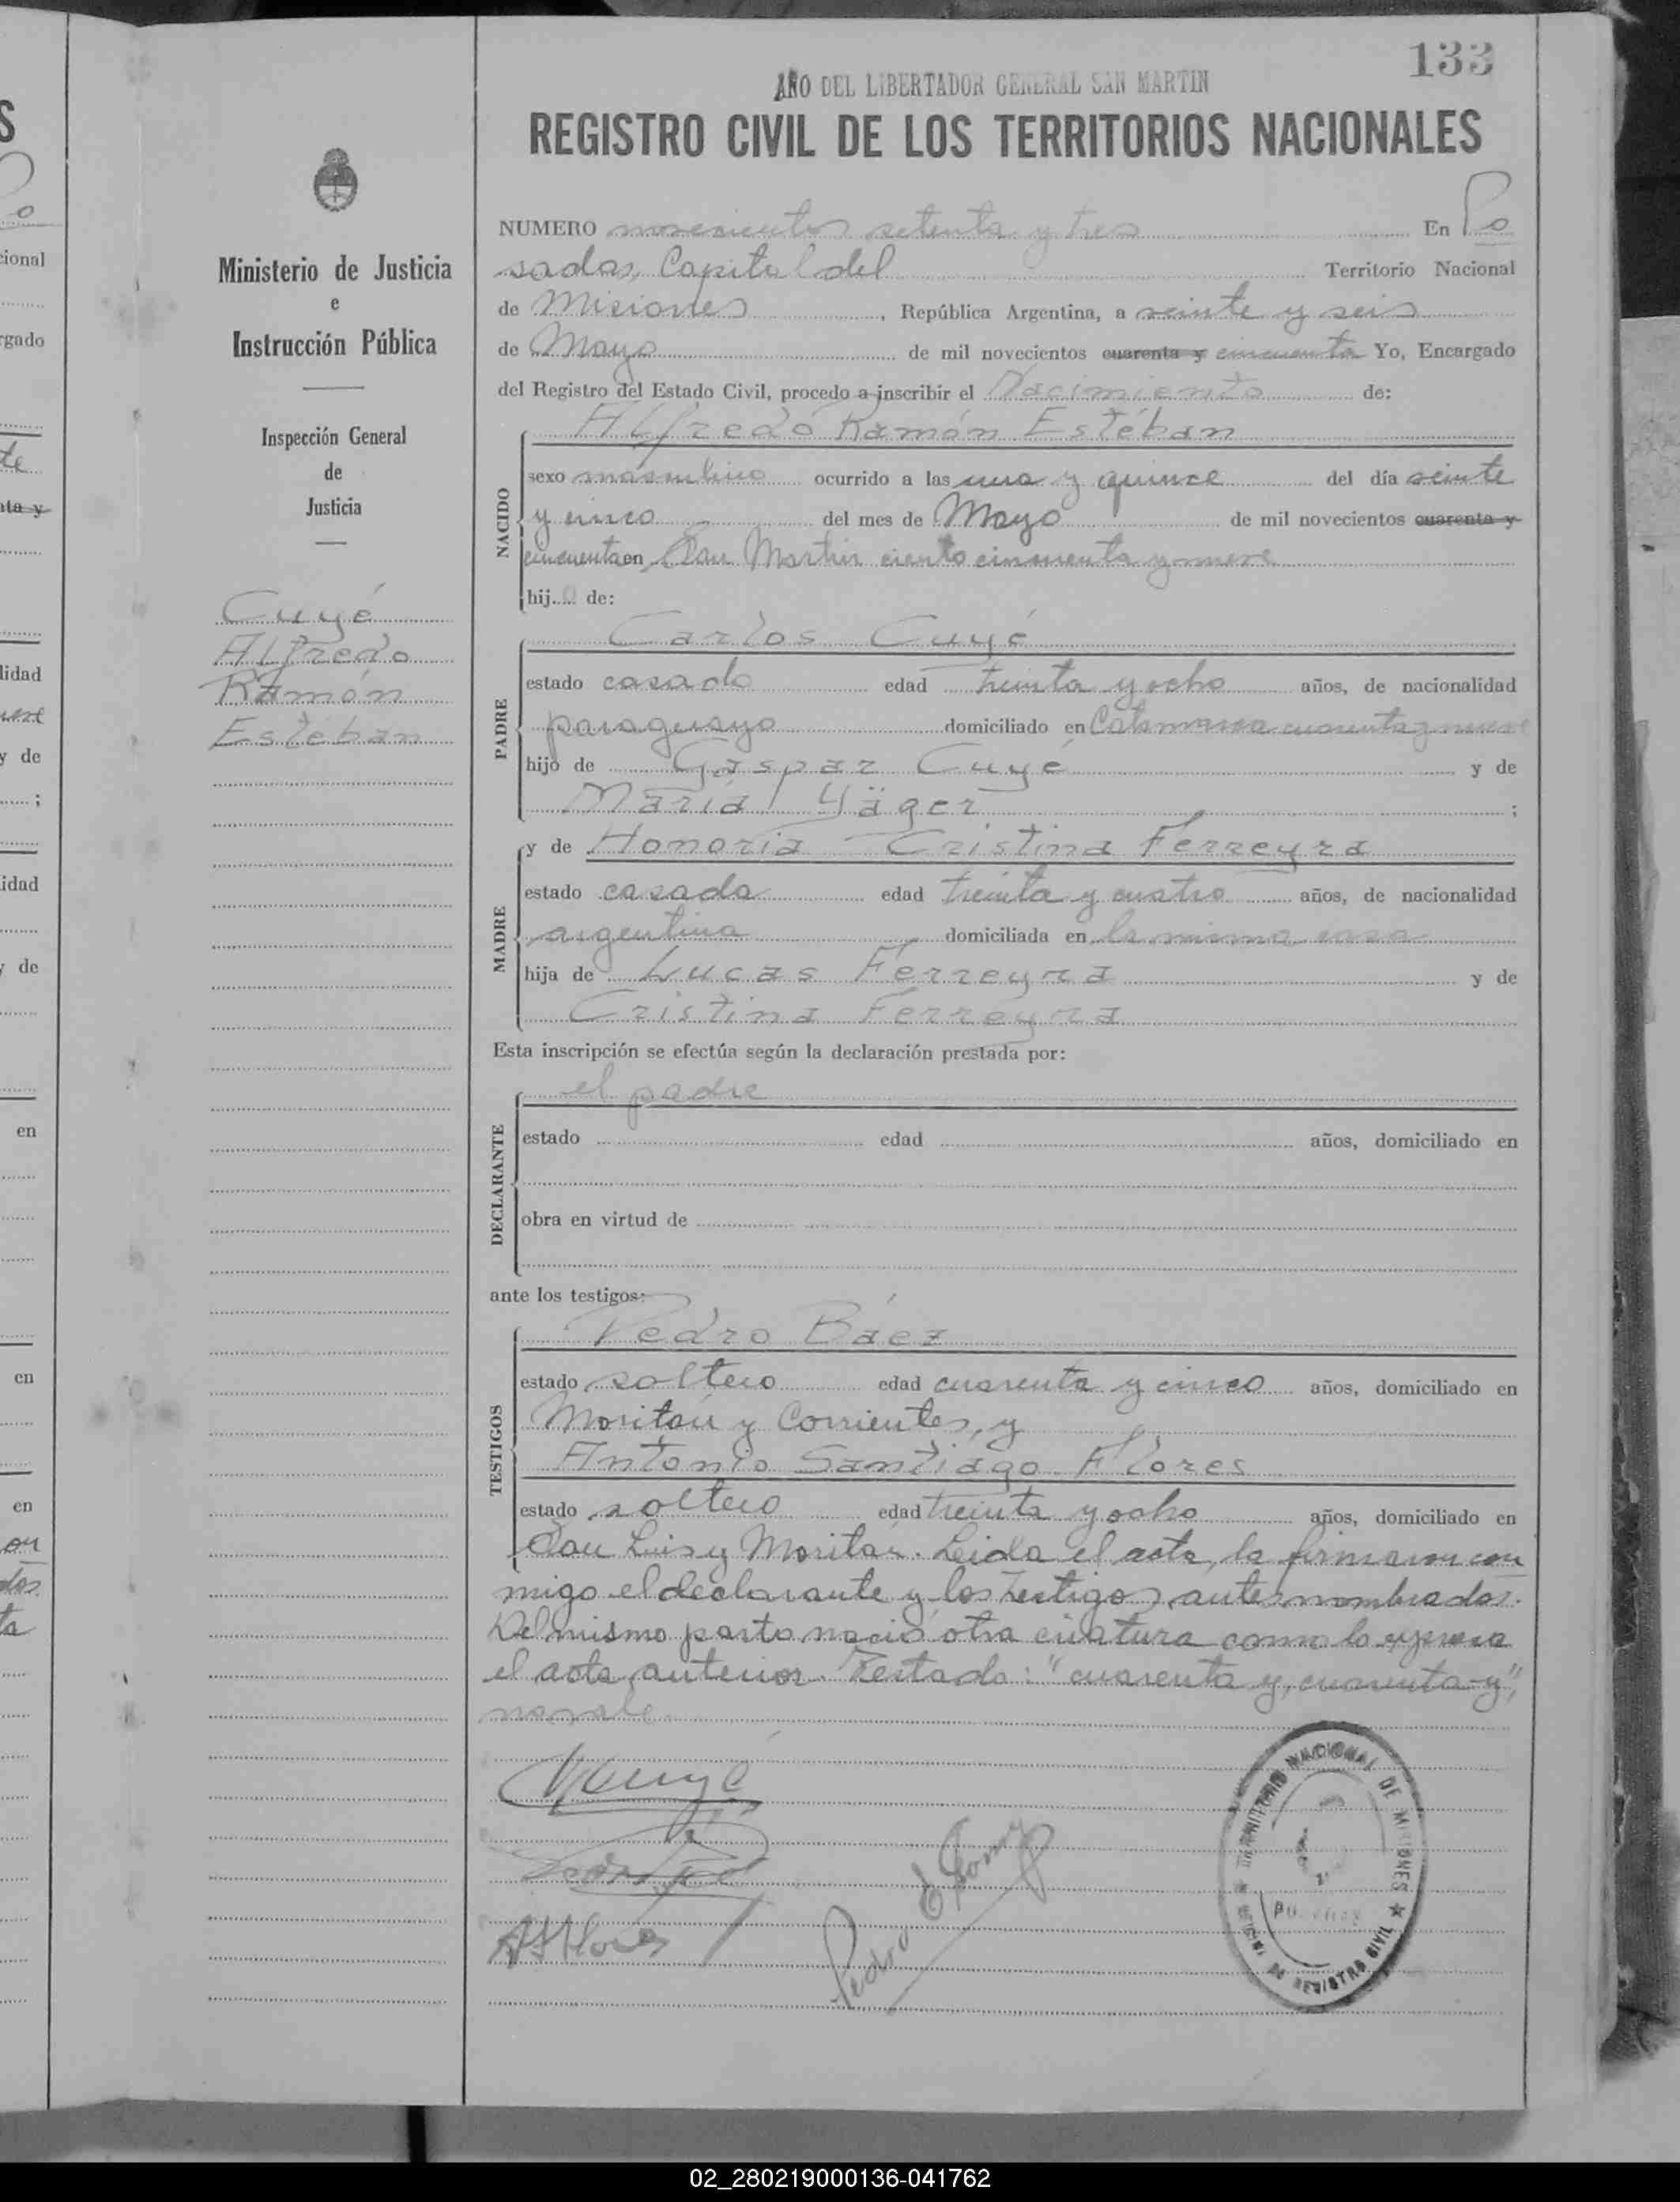 133
AÑO DEL LIBERTADOR GENERAL SAN MARTIN
REGISTRO CIVIL DE LOS TERRITORIOS NACIONALES
Ministerio de Justicia
e
Instrucción Pública
Inspección General
de
Justicia
Cuyé
Alfredo
Ramón
Estéban
NUMERO novecientos setenta y tres En Po
sadas, Capital del Territorio Nacional
de Misiones, República Argentina, a veinte y seis
de Mayo de mil novecientos cuarenta y cincuenta Yo, Encargado
del Registro del Estado Civil, procedo a inscribir el Nacimiento de:
NACIDO
Alfredo Ramón Estéban
sexo masculino ocurrido a las una y quince del día veinte
y cinco del mes de Mayo de mil novecientos cuarenta y
cincuenta en San Martin ciento cincuenta y nueve
hijo de:
PADRE
Carlos Cuyé
estado casado edad treinta y ocho años, de nacionalidad
paraguayo domiciliado en Catamarca cuarenta y nueve
hijo de Gaspar Cuyé y de
María Yäger ;
MADRE
y de Honoria Cristina Ferreyra
estado casada edad treinta y cuatro años, de nacionalidad
argentina domiciliada en la misma casa
hija de Lucas Ferreyra y de
Cristina Ferreyra
Esta inscripción se efectúa según la declaración prestada por:
DECLARANTE
el padre
estado edad años, domiciliado en
obra en virtud de
ante los testigos:
TESTIGOS
Pedro Báez
estado soltero edad cuarenta y cinco años, domiciliado en
Moritán y Corrientes, y
Antonio Santiágo Flores
estado soltero edad treinta y ocho años, domiciliado en
San Luis y Moritán. Leida el acta, la firmaron con
migo el declarante y los testigos antes nombrados.
Del mismo parto nació otra criatura como lo expresa
el acta anterior. Testado: "cuarenta y, cuarenta y",
no vale.
Cuyé
ASFlores
Pedro
TERRITORIO NACIONAL DE MISIONES
OFICINA DE REGISTRO CIVIL
POSADAS
02_280219000136-041762